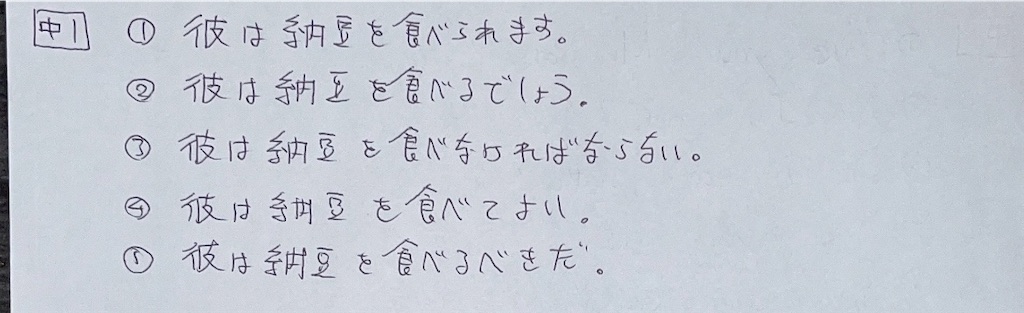 中1 ① 彼は納豆を食べられます。
② 彼は納豆を食べるでしょう。
③ 彼は納豆を食べなければならない。
④ 彼は納豆を食べてよい。
⑤ 彼は納豆を食べるべきだ。